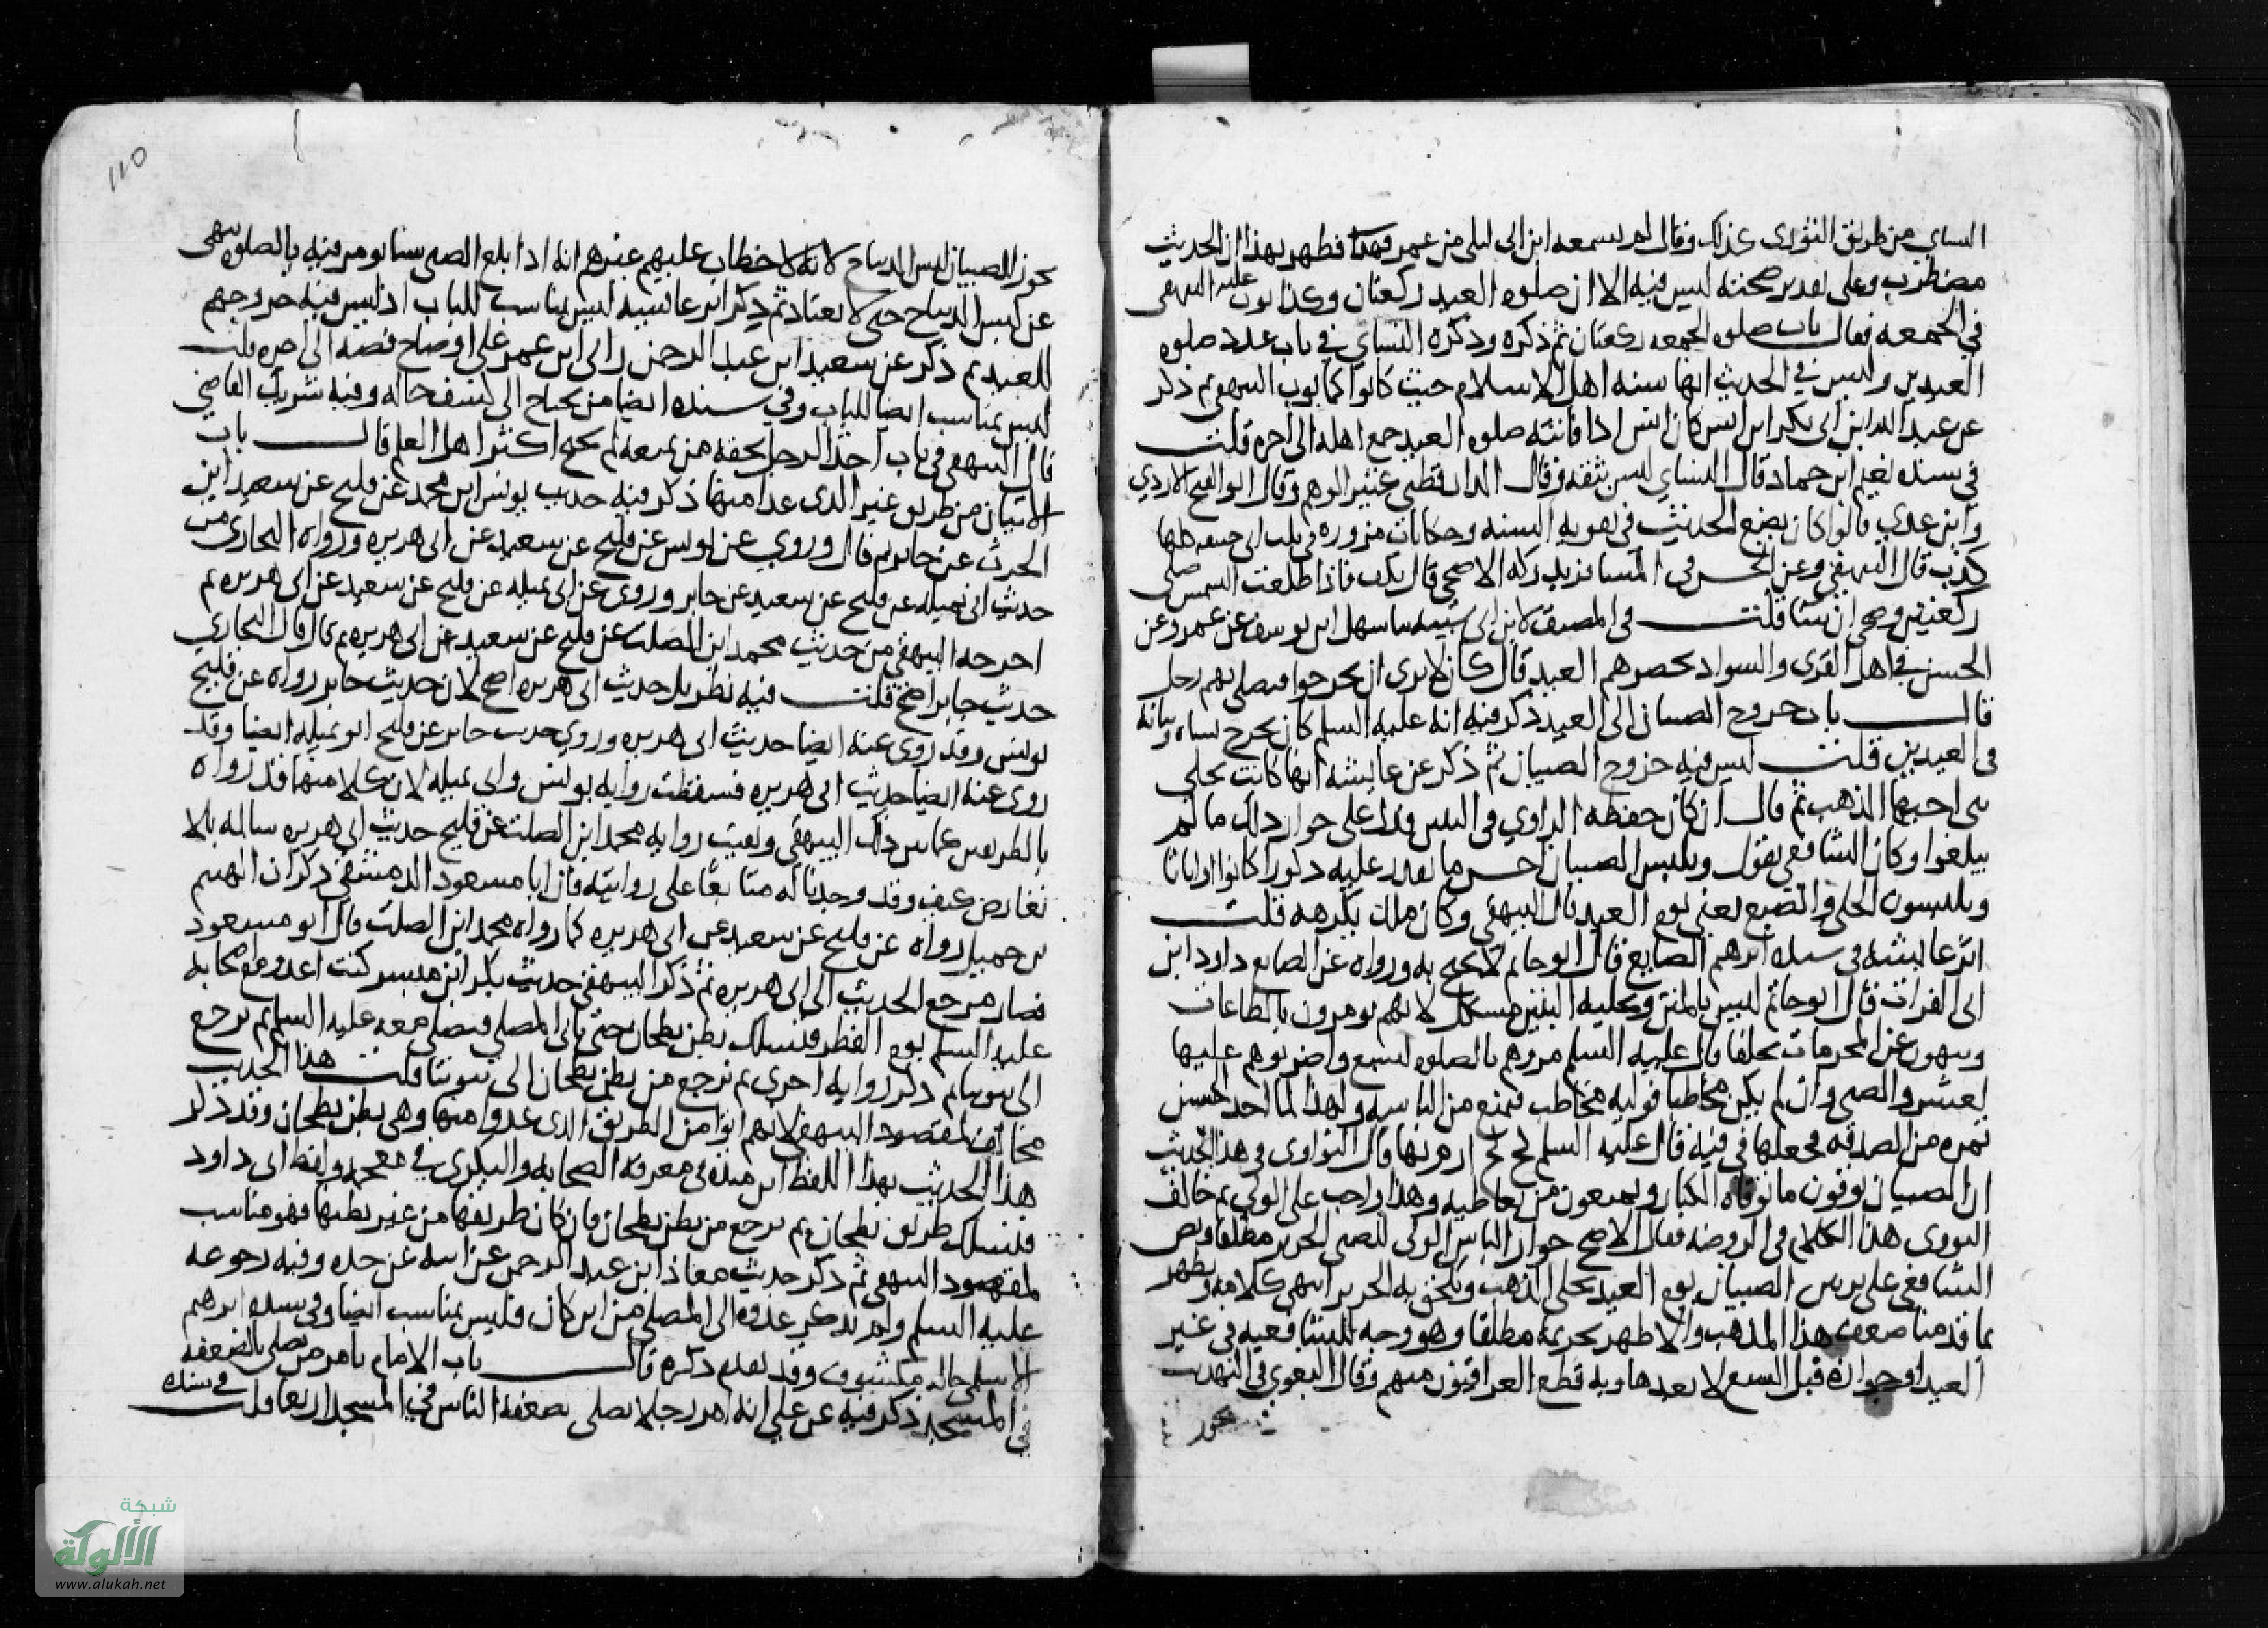 النساي من طريق الثوري كذلك وقال لم يسمعه ابن ابي ليلى من عمر فهذا فظهر بهذا ان الحديث
مضطرب وعلى تقدير صحته ليس فيه الا ان صلوة العيد ركعتان وكذا بوب عليه البيهقي
في الجمعه فقال باب صلوة الجمعه ركعتان ثم ذكره وذكره النساي في باب عدد صلوة
العيدين وليس في الحديث انها سنه اهل الاسلام حيث كانوا كما بوب البيهقي ثم ذكر
عن عبيد الله ابن ابي بكر ابن انس كان انس اذا فاتته صلوة العيد جمع اهله الى اخره قلت
في سنده نعيم ابن حماد قال النساي ليس بثقه وقال الدارقطني كثير الوهم وقال ابو الفتح الازدي
وابن عدي قالوا كان يضع الحديث في تقويه السنه وحكايات مزوره في ثلب ابي حنيفه كلها
كذب قال البيهقي وعن الحسن في المسافر يدركه الاضحى قال يكف فاذا طلعت الشمس صلى
ركعتين وضحى ان شا قلت في المصنف لابن ابي شيبه سا سهل ابن يوسف عن عمرو عن
الحسن في اهل القرى والسواد يحضرهم العيد قال كان لا يرى ان يخرجوا فيصلي بهم رجل
قال باب خروج الصبيان الى العيد ذكر فيه انه عليه السلم كان يخرج نساه وبناته
في العيدين قلت ليس فيه خروج الصبيان ثم ذكر عن عايشه انها كانت تحلي
بني اخيها الذهب ثم قال ان كان حفظه الراوي في البنين فدل على جواز ذلك ما لم
يبلغوا وكان الشافعي يقول ويلبس الصبيان احسن ما يقدر عليه ذكورا كانوا او اناثا
ويلبسون الحلي والصبغ يعني يوم العيد قال البيهقي وكان ملك يكرهه قلت
اثر عايشه في سنده ابرهيم الصايغ قال ابو حاتم لا يحتج به ورواه عن الصايغ داود ابن
ابي الفرات قال ابو حاتم ليس بالمتين وتحليه البنين مشكل لانهم يومرون بالطاعات
وينهون عن المحرمات تخلقا قال عليه السلم مروهم بالصلوة لسبع واضربوهم عليها
لعشر والصبي وان لم يكن مخاطبا فوليه مخاطب فيمنع من الباسه ولهذا لما اخذ الحسن
تمره من الصدقه فجعلها في فيه قال عليه السلم كخ كخ ارم بها قال النواوي في هذا الحديث
ان الصبيان يوقون ما يوقاه الكبار ويمنعون من تعاطيه وهذا واجب على الولي ثم خالف
النووي هذا الكلام في الروضه فقال الاصح جواز الباس الولي للصبي الحرير مطلقا ونص
الشافعي على تزيين الصبيان يوم العيد بحلي الذهب ويلحق به الحرير انتهى كلامه ويظهر
بما قدمنا ضعف هذا المذهب والاظهر تحريمه مطلقا وهو وجه للشافعيه في غير
العيد او جوازه قبل السبع لا بعدها وبه قطع العراقيون منهم وقال البغوي في التهذيب
يجوز
١١٥
يجوز للصبيان لبس الديباج لانه لا خطاب عليهم غيرهم انه اذا بلغ الصبي سنا يومر فيه بالصلوة ينهى
عن لبس الديباج حتى لا يعتاد ثم ذكر اثر عايشه ليس بمناسب للباب اذ ليس فيه خروجهم
للعيد ثم ذكر عن سعيد ابن عبد الرحمن راى ابن عمر علي اوضاح فضه الى اخره قلت
ليس بمناسب ايضا للباب وفي سنده ايضا من يحتاج الى كشف حاله وفيه شريك القاضي
قال البيهقي في باب اخذ الرجل حقه ممن يمنعه لم يحتج اكثر اهل العلم قال باب
الاتيان من طريق غير الذي غدا منها ذكر فيه حديث يونس ابن محمد عن فليح عن سعيد ابن
الحرث عن جابر ثم قال وروي عن يونس عن فليح عن سعيد عن ابي هريره ورواه البخاري من
حديث ابي تميله عن فليح عن سعيد عن جابر وروي عن ابي تميله عن فليح عن سعيد عن ابي هريره ثم
اخرجه البيهقي من حديث محمد ابن الصلت عن فليح عن سعيد عن ابي هريره ثم قال قال البخاري
حديث جابر اصح قلت فيه نظر بل حديث ابي هريره اصح لان حديث جابر رواه عن فليح
يونس وقد روي عنه ايضا حديث ابي هريره وروي حديث جابر عن فليح ابو تميله ايضا وقد
روي عنه ايضا حديث ابي هريره فسقطت روايه يونس وابي تميله لان كلا منهما قد رواه
بالطريقين كما بين ذلك البيهقي وبقيت روايه محمد ابن الصلت عن فليح حديث ابي هريره سالمه بلا
تعارض كيف وقد وجدنا له متابعا على روايته فان ابا مسعود الدمشقي ذكر ان الهيثم
بن جميل رواه عن فليح عن سعيد عن ابي هريره كما رواه محمد ابن الصلت قال ابو مسعود
فصار مرجع الحديث الى ابي هريره ثم ذكر البيهقي حديث بكر ابن مبشر كنت اغدو مع صحابه
عليه السلم يوم الفطر فنسلك بطن بطحان حتى ناتي المصلى فنصلي معه عليه السلم ثم نرجع
الى بيوتنا ثم ذكر روايه اخرى ثم نرجع من بطن بطحان الى بيوتنا قلت هذا الحديث
مخالف لمقصود البيهقي لانهم اتوا من الطريق الذي غدوا منها وهي بطن بطحان وقد ذكر
هذا الحديث بهذا اللفظ ابن منده في معرفة الصحابه والبكري في معجمه ولفظ ابي داود
فنسلك طريق بطحان ثم نرجع من بطن بطحان فان كان طريقها من غير بطنها فهو مناسب
لمقصود البيهقي ثم ذكر حديث معاذ ابن عبد الرحمن عن ابيه عن جده وفيه رجوعه
عليه السلم ولم يذكر غدوه الى المصلى من اين كان فليس بمناسب ايضا وفي سنده ابرهيم
الاسلمي حاله مكشوف وقد تقدم ذكره قال باب الامام يامر من يصلي بالضعفه
في المسجد ذكر فيه عن علي انه امر رجلا يصلي بضعفه الناس في المسجد اربعا قلت في سنده
شبكة
الألوكة
www.alukah.net